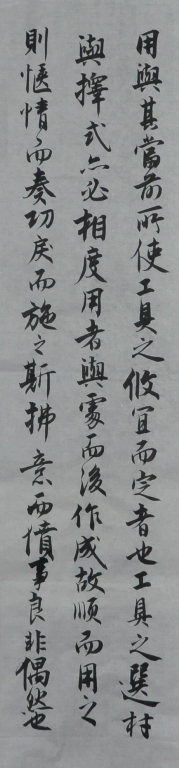 用與其當前所使工具之攸宜而定者也工具之選材
與擇式亦必相度用者與處而後作成故順而用之
則愜情而奏功戾而施之斯拂意而僨事良非偶然也